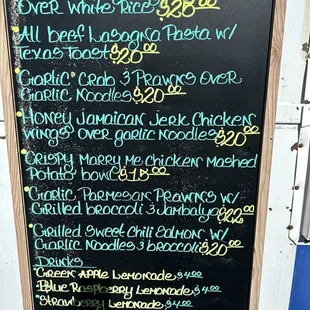 Over White Rice $28.00
All beef Lasagna Pasta w/
Texas Toast $20.00
Garlic Crab & Prawns Over
Garlic Noodles $20.00
Honey Jamaican Jerk Chicken
wings over garlic noodles $20.00
Crispy Marry Me Chicken Mashed
Potato bowl $15.00
Garlic Parmesan Prawns w/
Grilled broccoli & Jambalya $22.00
Grilled Sweet Chili Salmon w/
Garlic Noodles & broccoli $20.00
Drinks
Green Apple Lemonade $4.00
Blue Raspberry Lemonade $4.00
Strawberry Lemonade $4.00